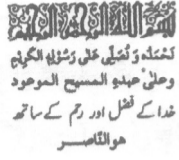 بسم الله الرحمن الرحيم
نحمده و نصلی علی رسوله الکریم
وعلیٰ عبدہ المسیح الموعود
خدا کے فضل اور رحم کے ساتھ
هوالنّاصر